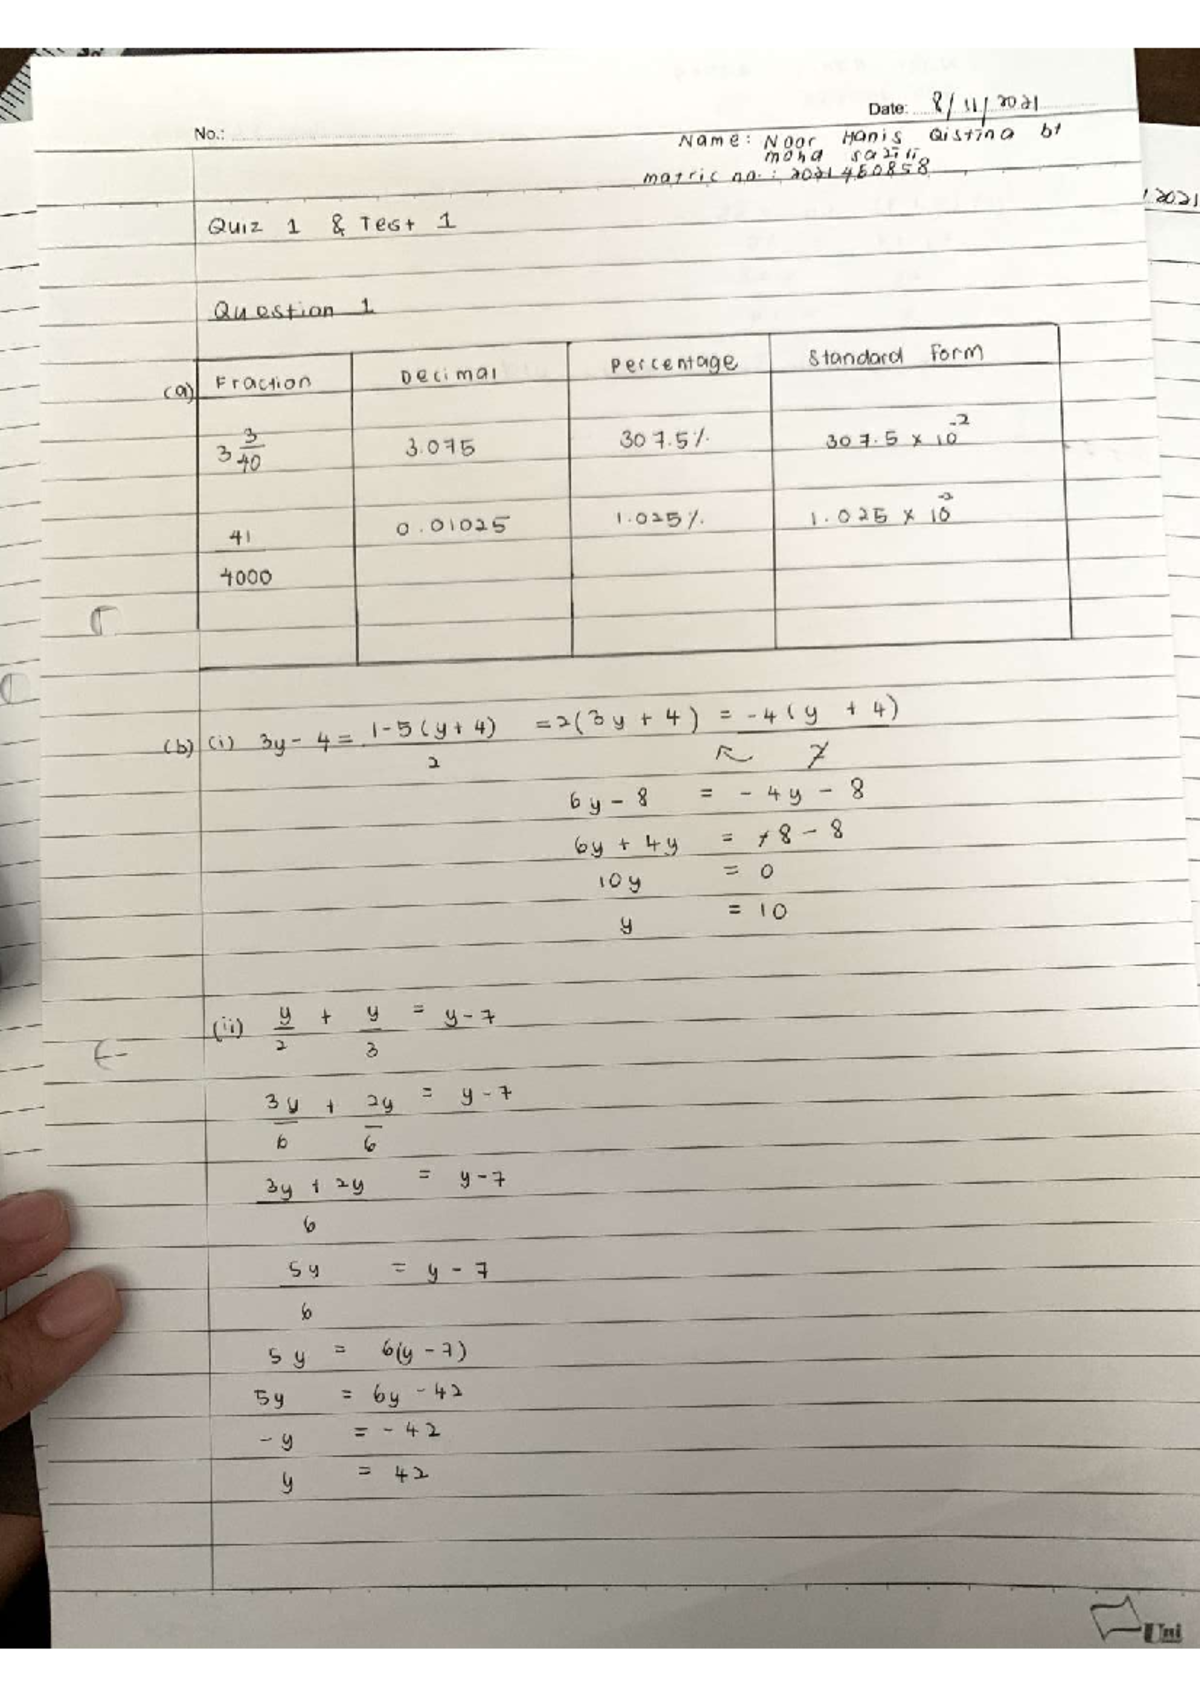 Date: 8/11/2021
No.:
Name: Noor Hanis Qistina bt
mohd sazili
matric no.: 2021460858
2021
Quiz 1 & Test 1
Question 1
(a) Fraction Decimal Percentage Standard Form
3 3/40 3.075 307.5% 307.5 x 10^-2
41/4000 0.01025 1.025% 1.025 x 10^-2
(b) (i) 3y - 4 = 1-5(y+4)/2 = 2(3y + 4) = -4(y + 4)/2
6y - 8 = - 4y - 8
6y + 4y = +8 - 8
10y = 0
y = 10
(ii) y/2 + y/3 = y-7
3y/6 + 2y/6 = y-7
3y + 2y/6 = y-7
5y/6 = y - 7
5y = 6(y - 7)
5y = 6y - 42
-y = - 42
y = 42
Uni